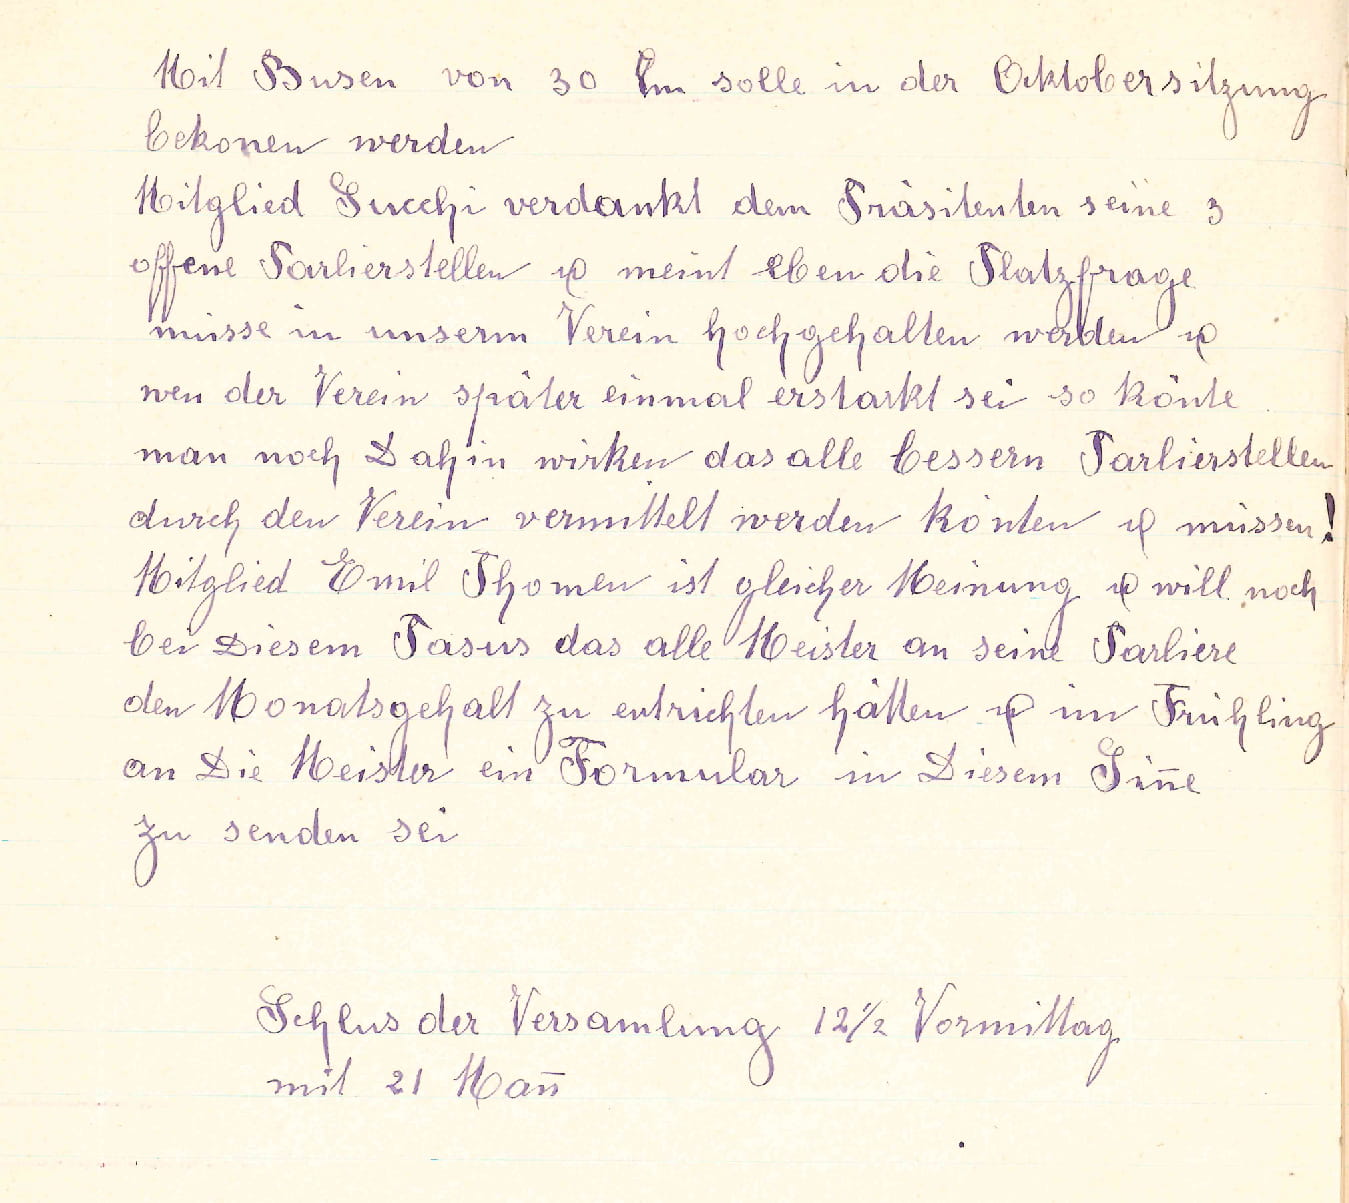 Mit Busen von 30 Cm solle in der Oktobersitzung
bekonen werden
Mitglied Succhi verdankt dem Präsitenten seine 3
offene Parlierstellen u meint eben die Platzfrage
müsse in unserm Verein hochgehalten werden u
wen der Verein später einmal erstarkt sei so könte
man noch Dahin wirken das alle bessern Parlierstellen
durch den Verein vermittelt werden könten u müssen!
Mitglied Emil Thomen ist gleicher Meinung u will noch
bei Diesem Pasus das alle Meister an seine Parliere
den Monatsgehalt zu entrichten hätten u im Frühling
an Die Meister ein Formular in Diesem Sin̄e
zu senden sei
Schlus der Versamlung 12½ Vormittag
mit 21 Man̄